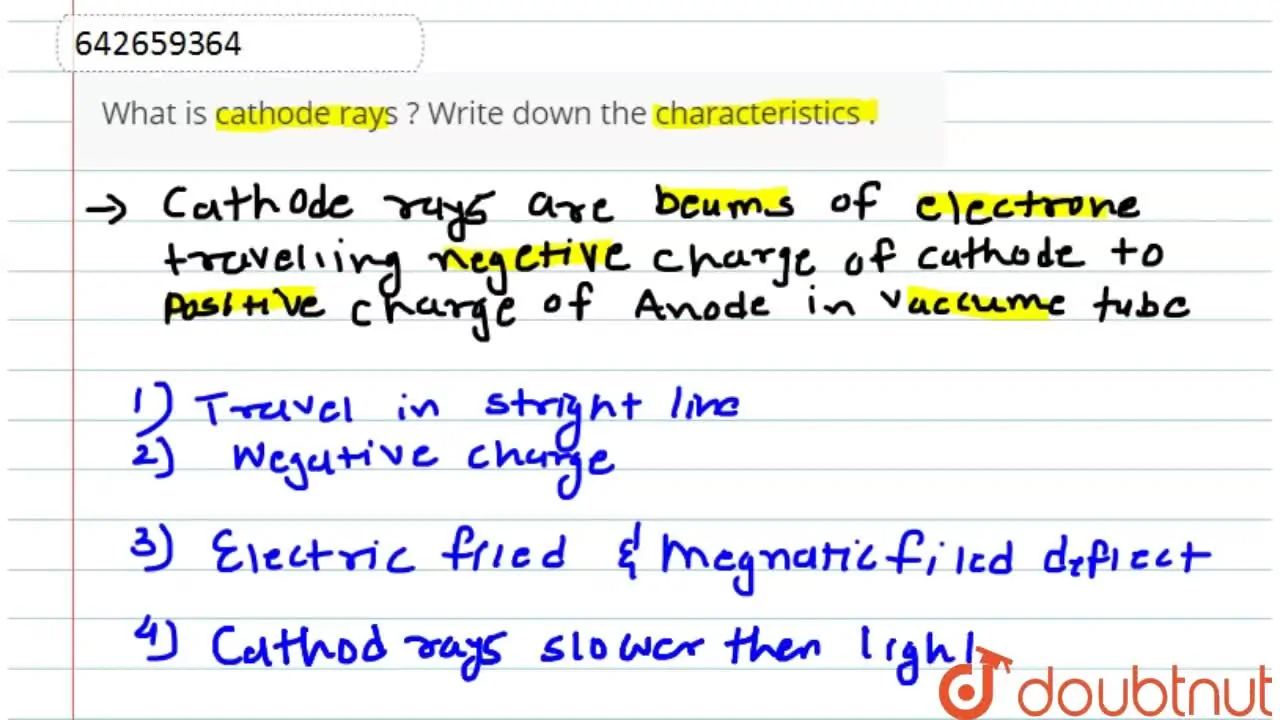 642659364
What is cathode rays ? Write down the characteristics .
→ Cathode rays are beums of electrone
travelling negetive charge of cathode to
positive charge of Anode in vaccume tube
1) Travel in stright line
2) Negative charge
3) Electric filed & Megnatic filed deflect
4) Cathod rays slower then light
doubtnut